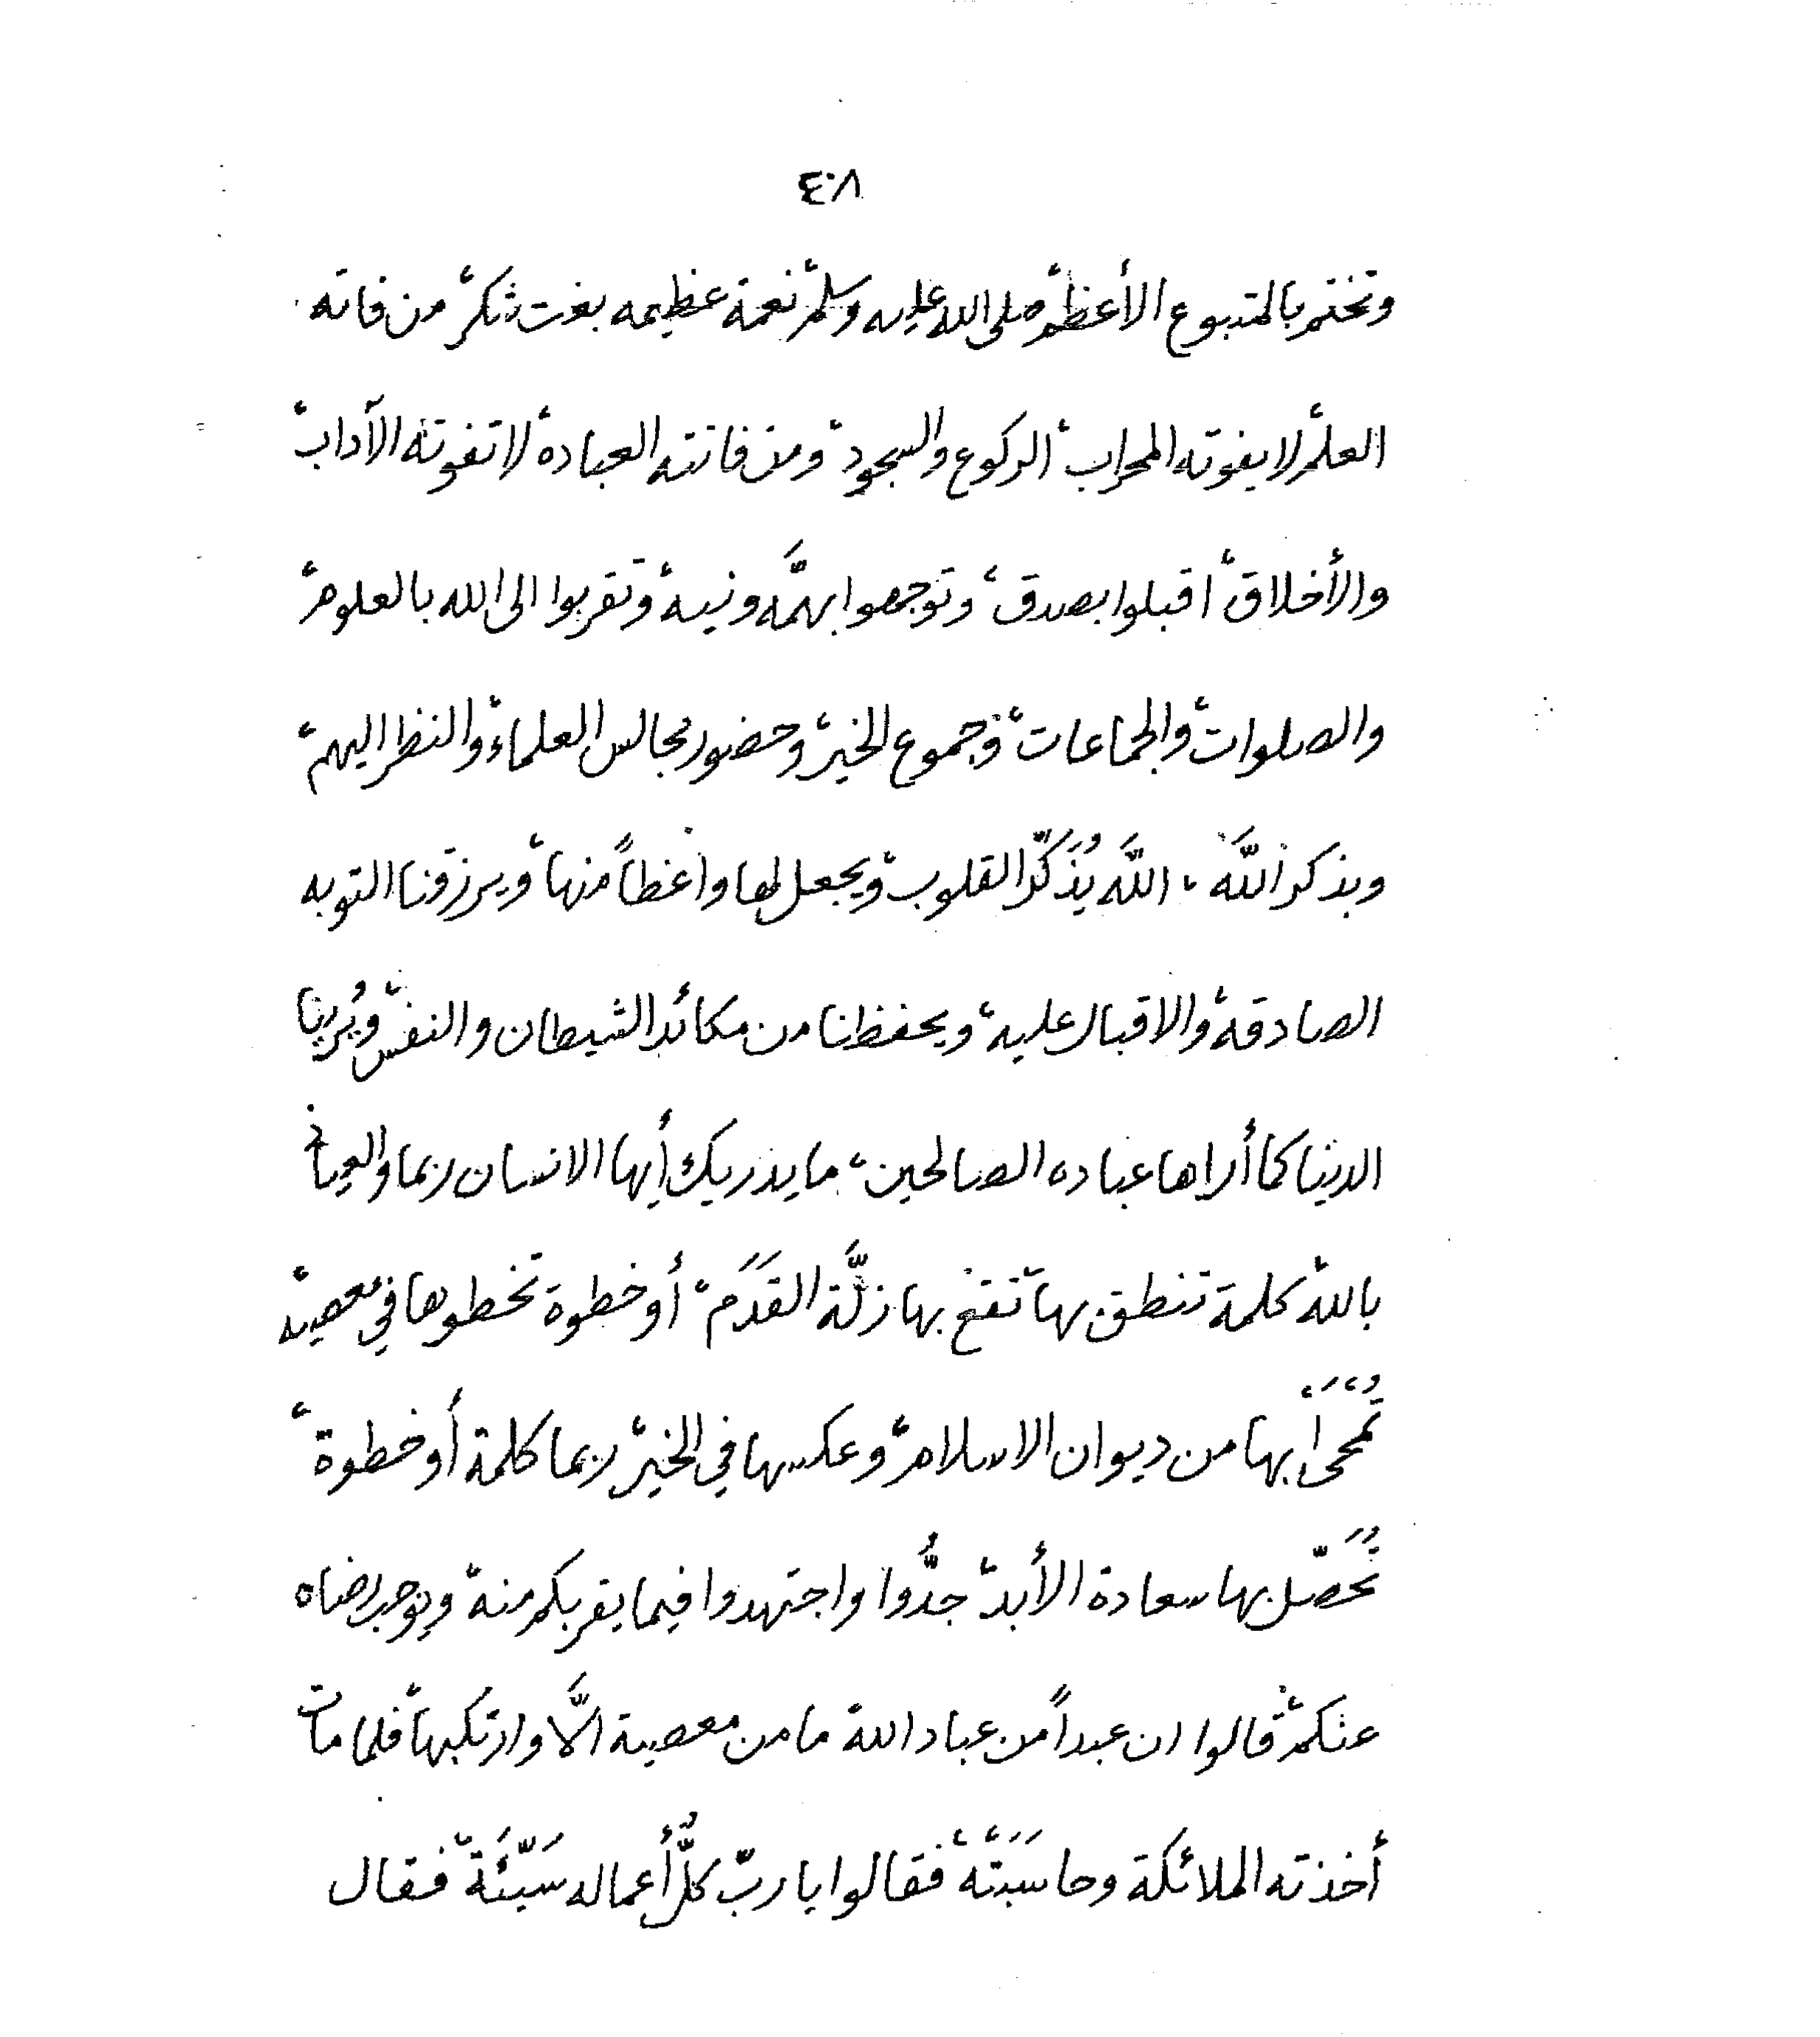 ٤٠٨
وتختم بالمتبوع الأعظم صلى الله عليه وسلم، نعمة عظيمه بغت شكر، من فاته
العلم، لا يفوته المحراب، الركوع والسجود، ومن فاتته العباده، لا تفوته الآداب،
والأخلاق، اقبلوا بصدق، وتوجهوا بهمَّه ونيه، وتقربوا الى الله بالعلوم،
والصلوات، والجماعات، وجموع الخير، وحضور مجالس العلماء، والنظر اليهم،
وبذكر اللَّه، اللَّه يُذَكِّر القلوب، ويجعل لها واعظاً منها، ويرزقنا التوبه
الصادقه، والاقبال عليه، ويحفظنا من مكائد الشيطان والنفس، ويُرينا
الدنيا كما أراها عباده الصالحين، ما يدريك أيها الانسان ربما والعياذ
بالله، كلمة تنطق بها، تقع بها زلَّة القَدَم، أو خطوة تخطوها في معصيه،
تُمْحَىْ بها من ديوان الاسلام، وعكسها في الخير، ربما كلمة أو خطوة،
تُحَصّل بها سعادة الأبد، جدُّوا واجتهدوا فيما يقربكم منه، ويوجب رضاه
عنكم، قالوا ان عبداً من عباد الله، ما من معصية الاَّ وارتكبها، فلما مات
أخذته الملائكة وحاسَبَتْهُ، فقالوا يا ربّ كلُّ أعماله سَيّئَة، فقال